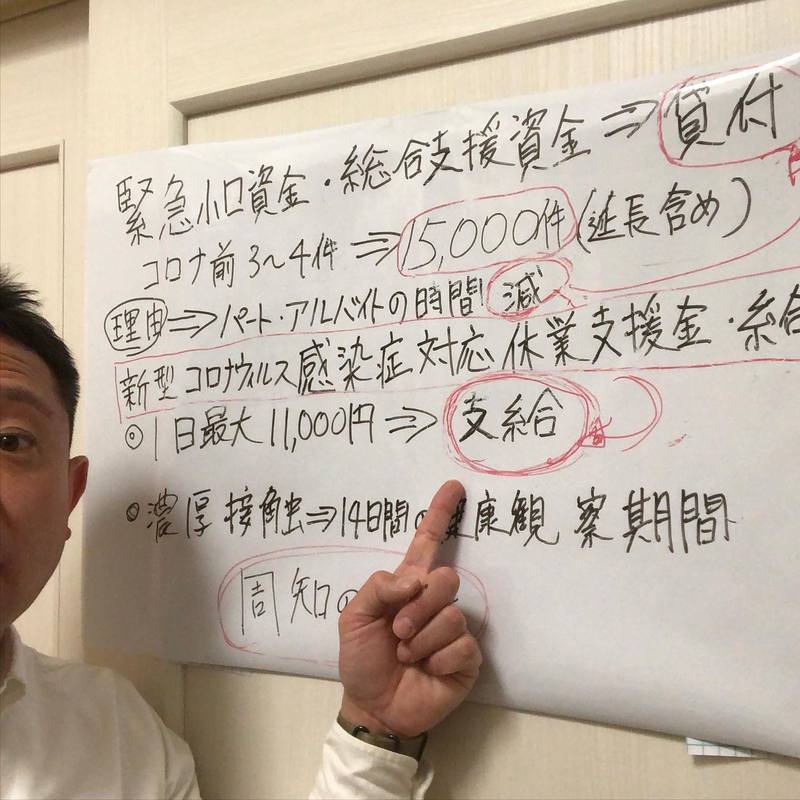 緊急小口資金・総合支援資金⇒貸付
コロナ前3〜4件⇒15,000件(延長含め)
理由⇒パート・アルバイトの時間減
新型コロナウィルス感染症対応休業支援金・給
◎1日最大11,000円⇒支給
◎濃厚接触⇒14日間の健康観察期間
周知の